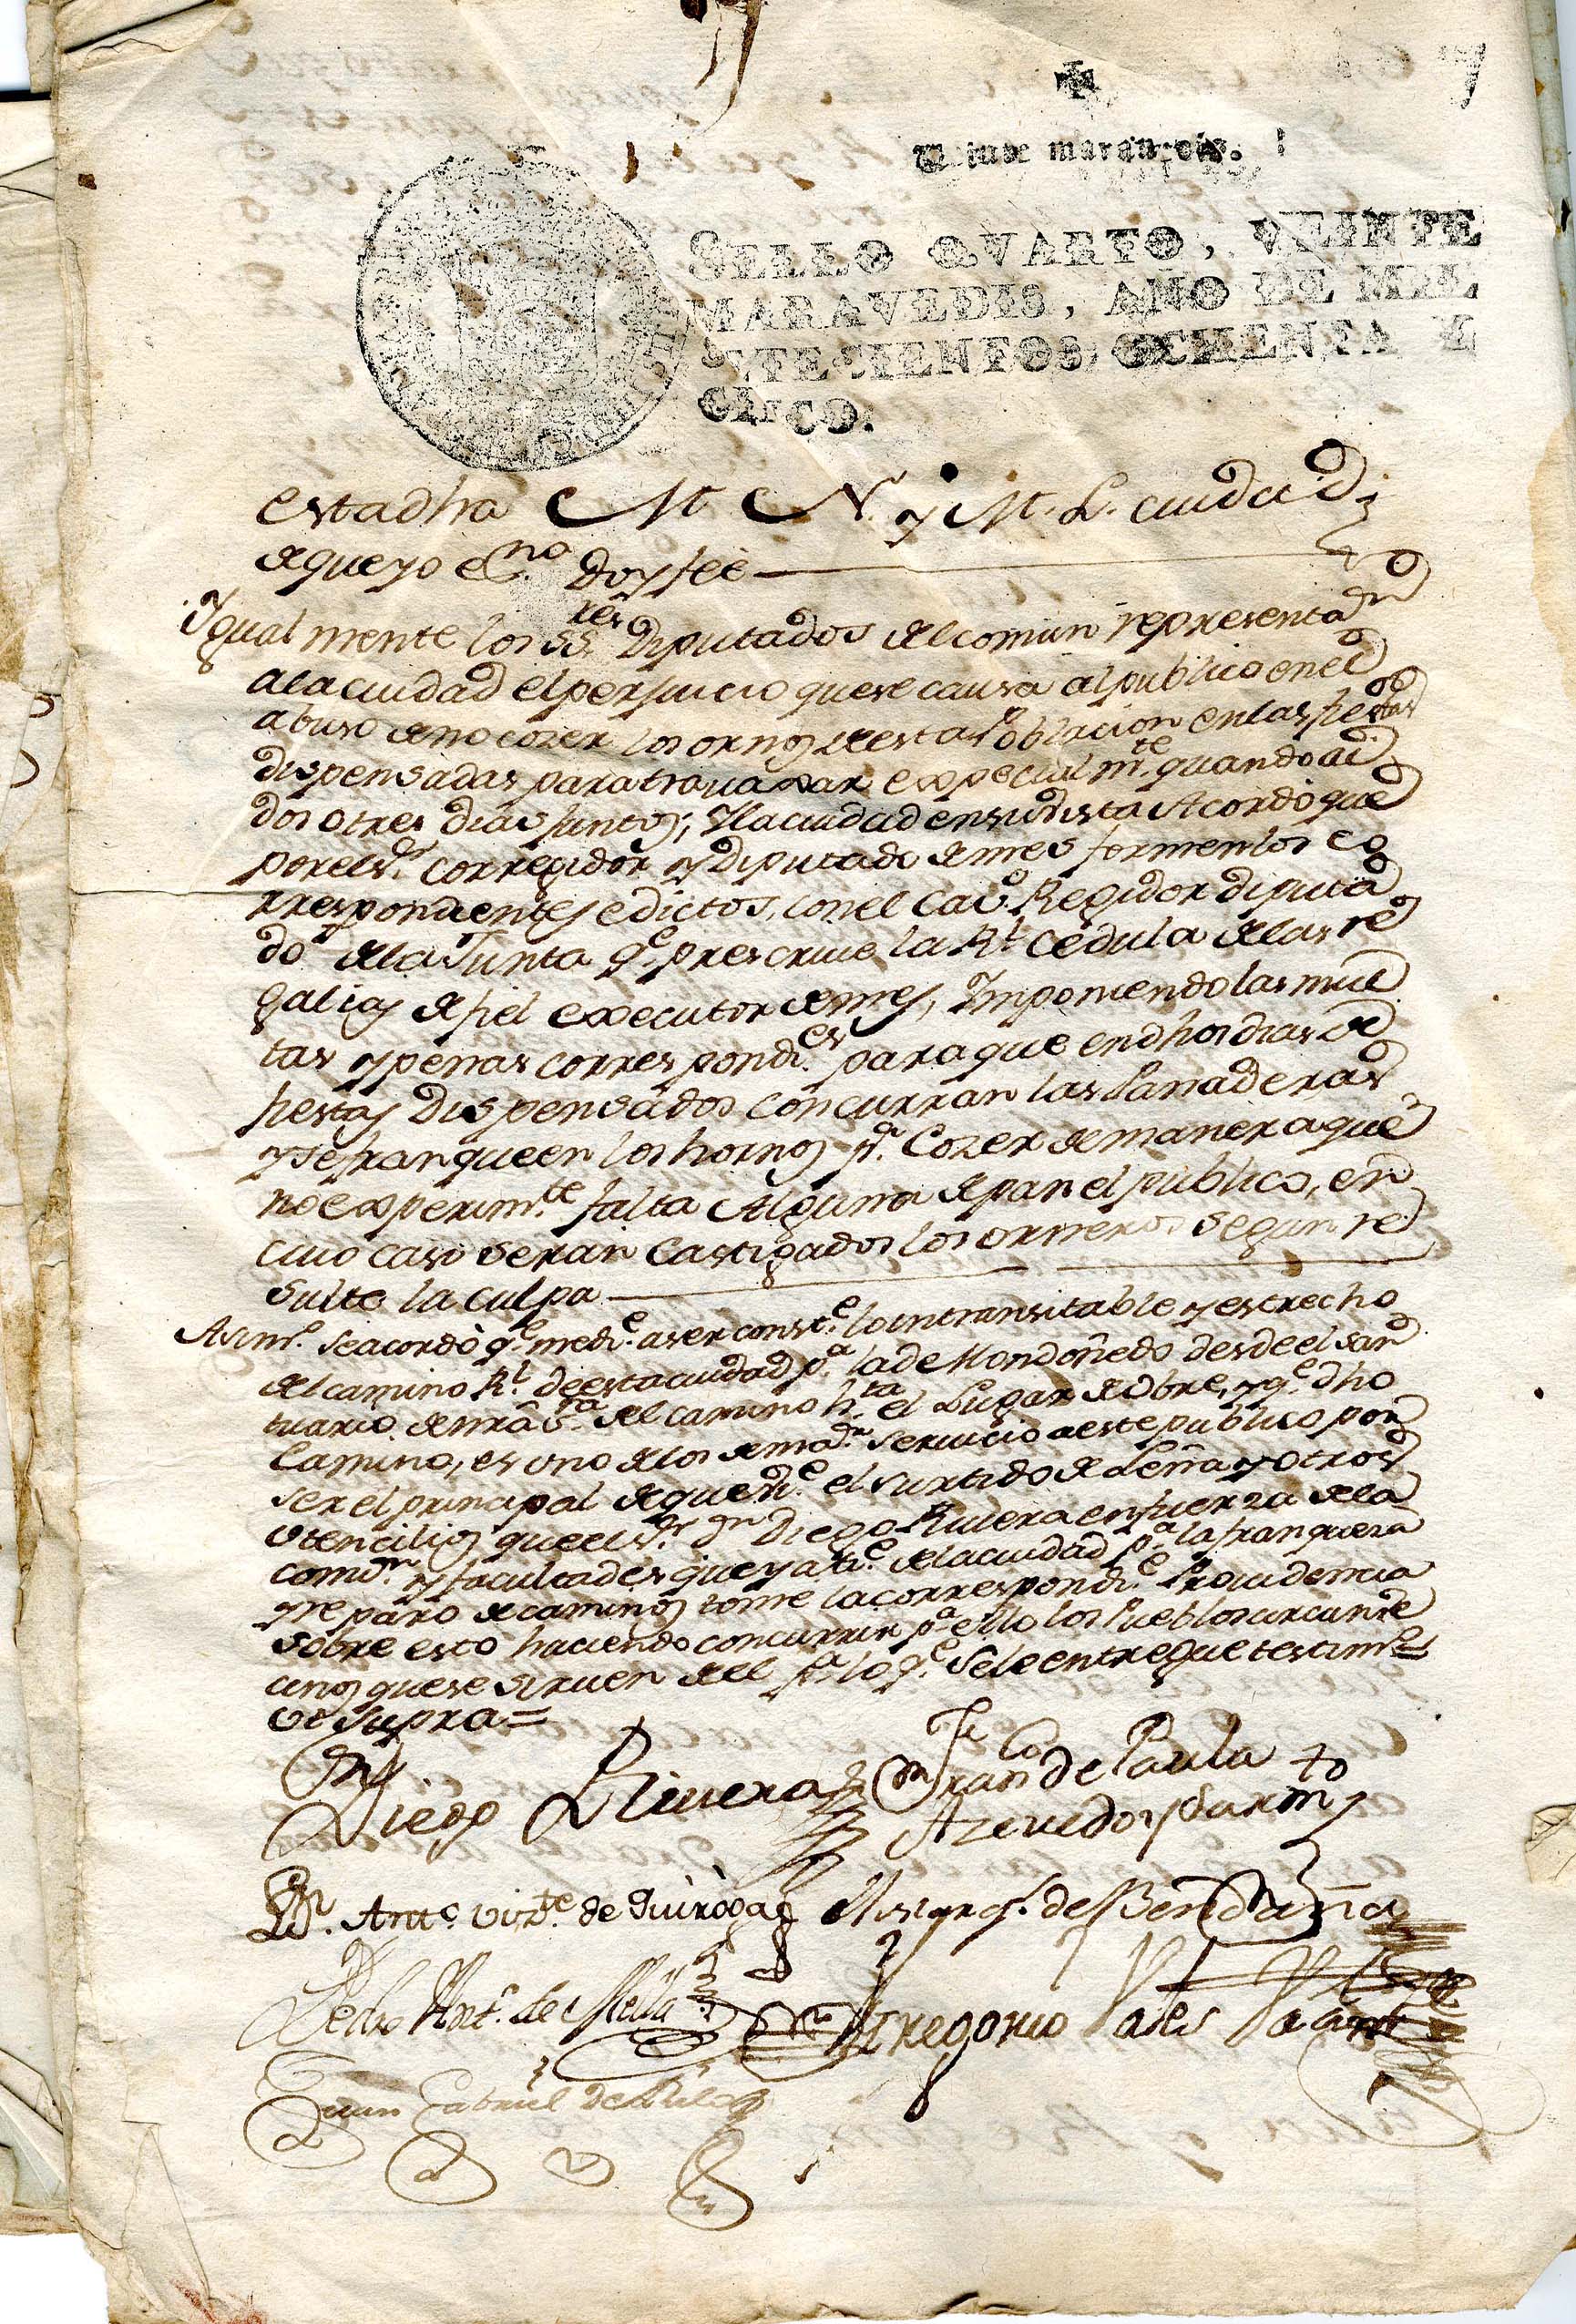 7
Veinte maravedis.
SELLO QVARTO, VEINTE
MARAVEDIS, AÑO DE MIL
SETECIENTOS OCHENTA Y
CINCO.
esta dha M N. y M. L. ciudad
de que yo es.no doy feè
Igualmente los SS.res Diputados del comun representan
a la ciudad el perjuicio que se causa al publico en el
abuso de no cozer los ornos de esta Poblacion en las fiestas
dispensadas para travaxar expecialm.te quando ai
dos o tres dias juntos; Y la ciudad en su vista Acordò que
por el s.r corregidor y diputado de mes formen los co
rrespondientes edictos, con el Cav.o Regidor diputa
do de la Junta q.e prescrive la R.l Cedula de las re
galias de fiel executor de mes, Imponiendo las mul
tas y penas correspondi.es para que en dhos dias de
fiestas Dispensados concurran las Panaderas
y se franqueen los hornos p.a Cozer de manera que
no experim.te falta Alguna de pan el publico, en
cuio caso seran Castigados los orneros segun re
sulte la culpa
Asim.o se acordò q.e medi.e a ser const.e lo intransitable y estrecho
del camino R.l de esta ciudad p.a la de Mondoñedo desde el san
tuario de nrâ S.ra del camino h.ta el Lugar de Obre, y q.e dho
Camino, es uno de los de maor servicio a este publico por
ser el principal de que vi.e el surtido de Leña y otros
Utencilios que el s.r dn Diego Rivera en fuerza de la
comis.n y facultades que ya ti.e de la ciudad p.a la franqueza
y reparo de caminos tome la correspondi.e Providencia
sobre esto haciendo concurrir p.a ello los Pueblos circunve
cinos que se sirven del p.a lo q.e se le entregue testim.o
ut supra=
Dn Diego Rivera
Dn Fran.co de Paula
Azevedo y Sarm.to
Dn. Ant.o Viz.te de Quiroga
de Bendaña
Pedro Ant.o de Mella
Dn Gregorio
Juan Gabriel de